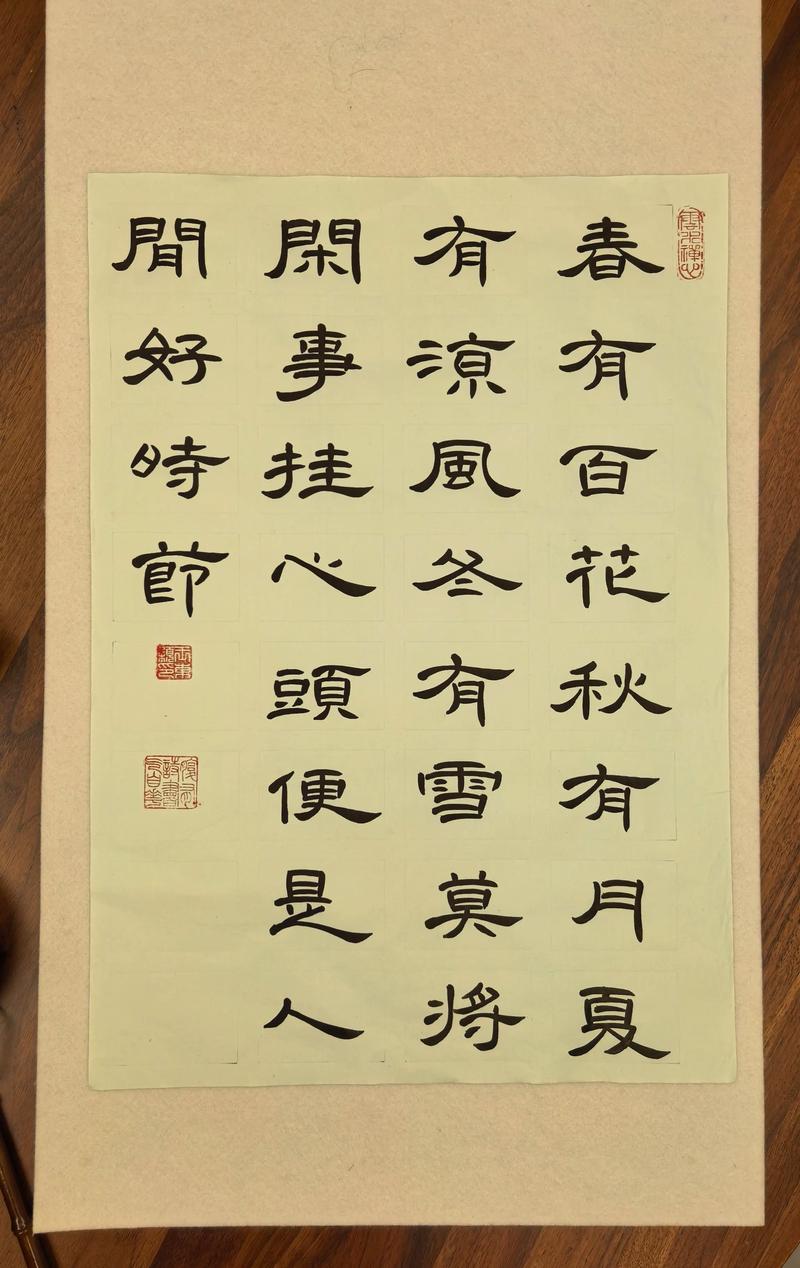 春有百花秋有月夏
有涼風冬有雪莫將
閑事挂心頭便是人
間好時節